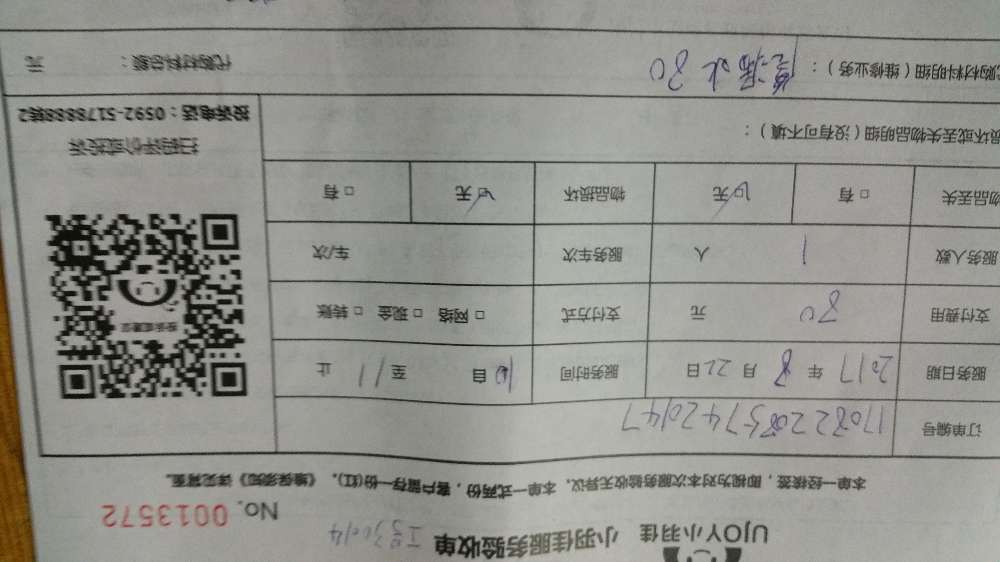 UJOY小羽佳 小羽佳服务验收单 工号30014
No. 0013572
本单一经核签，即视为对本次服务验收无异议，本单一式两份，客户留存一份(红)，《维保须知》详见背面。
订单编号 1708220857420147
服务日期 2017 年 8 月 22 日 服务时间 自 10 至 11 止
支付费用 80 元 支付方式 □ 网络 □ 现金 □ 转账
服务人数 1 人 服务车次 车/次
物品丢失 □ 有 ☑ 无 物品损坏 ☑ 无 □ 有
损坏或丢失物品明细（没有可不填）：
代购材料明细（维修业务）： 80 代购材料总额： 元
投诉或建议
扫码评价或投诉
投诉电话：0592-5178888转2